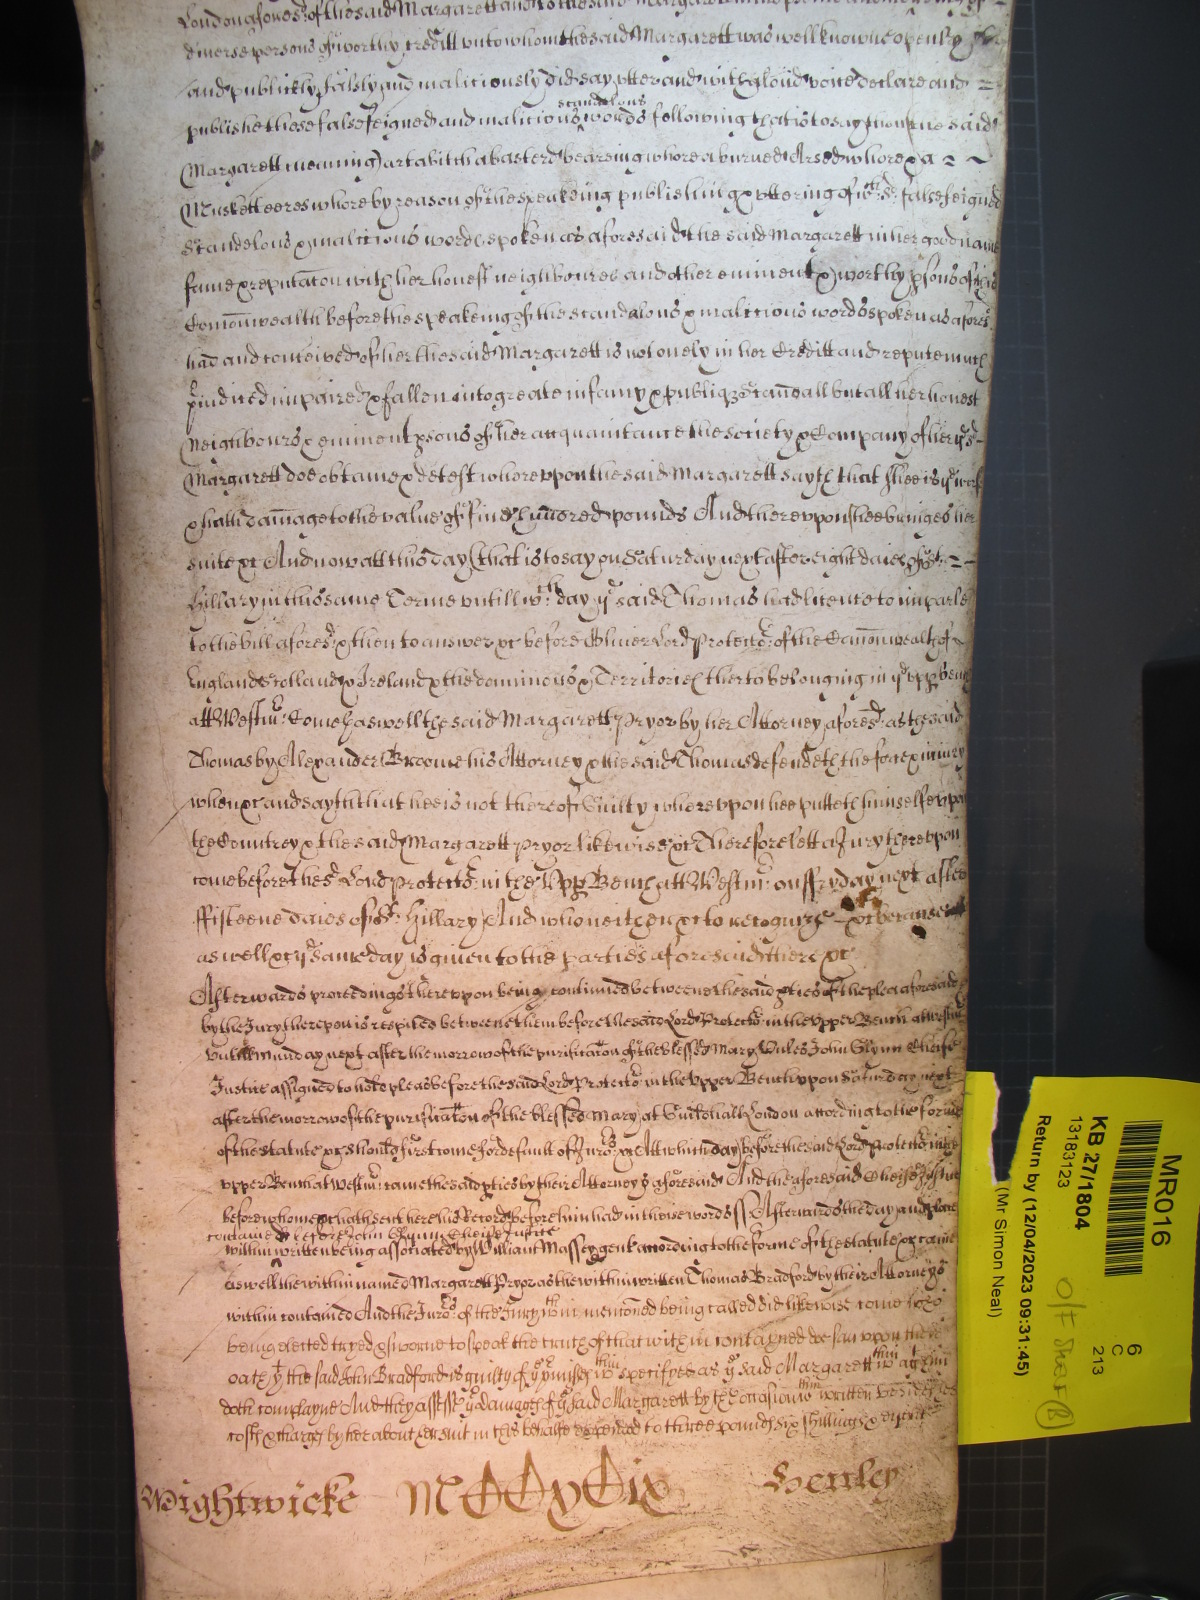 London afores: of the said Margarett and to the said Margarett
diverse persons of worthy creditt unto whom the said Margarett was well knowne openly
and publickly falsly and maliciously did say utter and with a loud voice declare and =
scandalous
publishe these false feigned and malicious words following that is to say thou the said
(Margarett meaning) art a bitch a basterd beareing whore a burned Arsed whore & a = ~
Musketteeres whore by reason of the speakeing publishing & uttering of wch: sd: false feigned
Scandelous & malicious words spoken as aforesaid the said Margarett in her good name
fame & reputacon with her honest neighboures and other eminent & worthy psons of this
Comonwealth before the speakeing of the scandalous & malicious words spoken as afores:
had and conceived of her the said Margarett is not onely in her Creditt and repute much
piudiced impaired & fallen into greate infamy & publiq Scandall but all her honest
Neighbours & eminent psons of her acquaintance the society & Company of her ye sd
Margarett doe obtaine & detest whoreuppon the said Margarett sayth that shee is ye worse
& hath damage to the value of five hundred pounds And thereuppon shee bringes her
suite &c And now att this day (that is to say) on Saturday next after eight daies of St: =
Hillary in this same Terme untill wch: day ye said Thomas had licence to imparle
to the bill afores: & then to answer &c before Oliver Lord Protector: of the Comonwealth of
England Scotland & Ireland & the dominions & Territories therto belonging in ye upp bench
att Westmr: Comes aswell the said Margarett Pryor by her Attorney aforesd: as the said
Thomas by Alexander Broome his Attorney & the said Thomas defendeth the force & iniury
when &c and sayth that hee is not thereof Guilty whereuppon hee putteth himselfe upon
the Countrey & the said Margarett Pryor likewise &c Therefore lett a Jury thereuppon
come before the sd: Lord Protector: in the Upp Bench att Westmr: on ffryday next after
ffifteene daies of St: Hillary And who neither &c to recognize &c because
as well &c ye same day is given to the parties aforesaid there &c
Afterwards proceedings thereuppon being continued betweene the said pties of the plea aforesaid
by the Jury thereupon is respited betweene them before the said Lord Protector: in the Upper Bench at Westmr
untill munday next after the morrow of the purificacon of the blessed Mary Unles John Glynn Cheife
Justice assigned to hold pleas before the said Lord Protector: in the Upper Bench uppon Saturday next
after the morrow of the purificacon of the blessed Mary at Guildhall London according to the forme
of the statute &c should first come for default of Juro:rs &c Att which day before the said Lord Protector in the
upper Bench at Westmr: came the said pties by their Attorneys aforesaid And the aforesaid Cheife Justice
before whome &c hath sent here his Record before him had in these words ss Afterwards the day and place
contained before John Glynn Cheife Justice
within written being associated by William Massey gent according to the forme of the statute &c came
aswell the within named Margarett Pryor as the within written Thomas Bradford by their Attorneys
within contained And the Juro:rs of the Jury wth in mentioned being called did likewise come who
being elected tryed & sworne to speak the truth of that within contayned doe say uppon their
oath yt the said John Bradford is guilty of ye pmisses wthin specifyed as ye said Margarett wthin agt him
doth complayne And they assesse ye damages of ye said Margarett by the occasion wthin written besides her
costs & charges by her about her suit in this behalfe expended to three pounds six shillings &
Wightwicke
Henley
MR016
KB 27/1804
13183123
Return by (12/04/2023 09:31:45)
(Mr Simon Neal)
6
C
213
O/F Shelf (B)